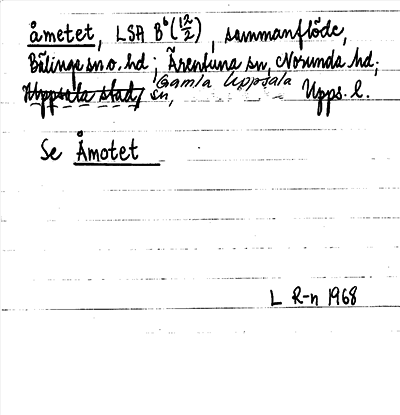 åmetet, LSA B⁶ (12/2), sammanflöde,
Bälinge sn o. hd; Ärentuna sn, Norunda hd;
Uppsala stad, Gamla Uppsala sn, Upps. l.
Se Åmotet
L R-n 1968